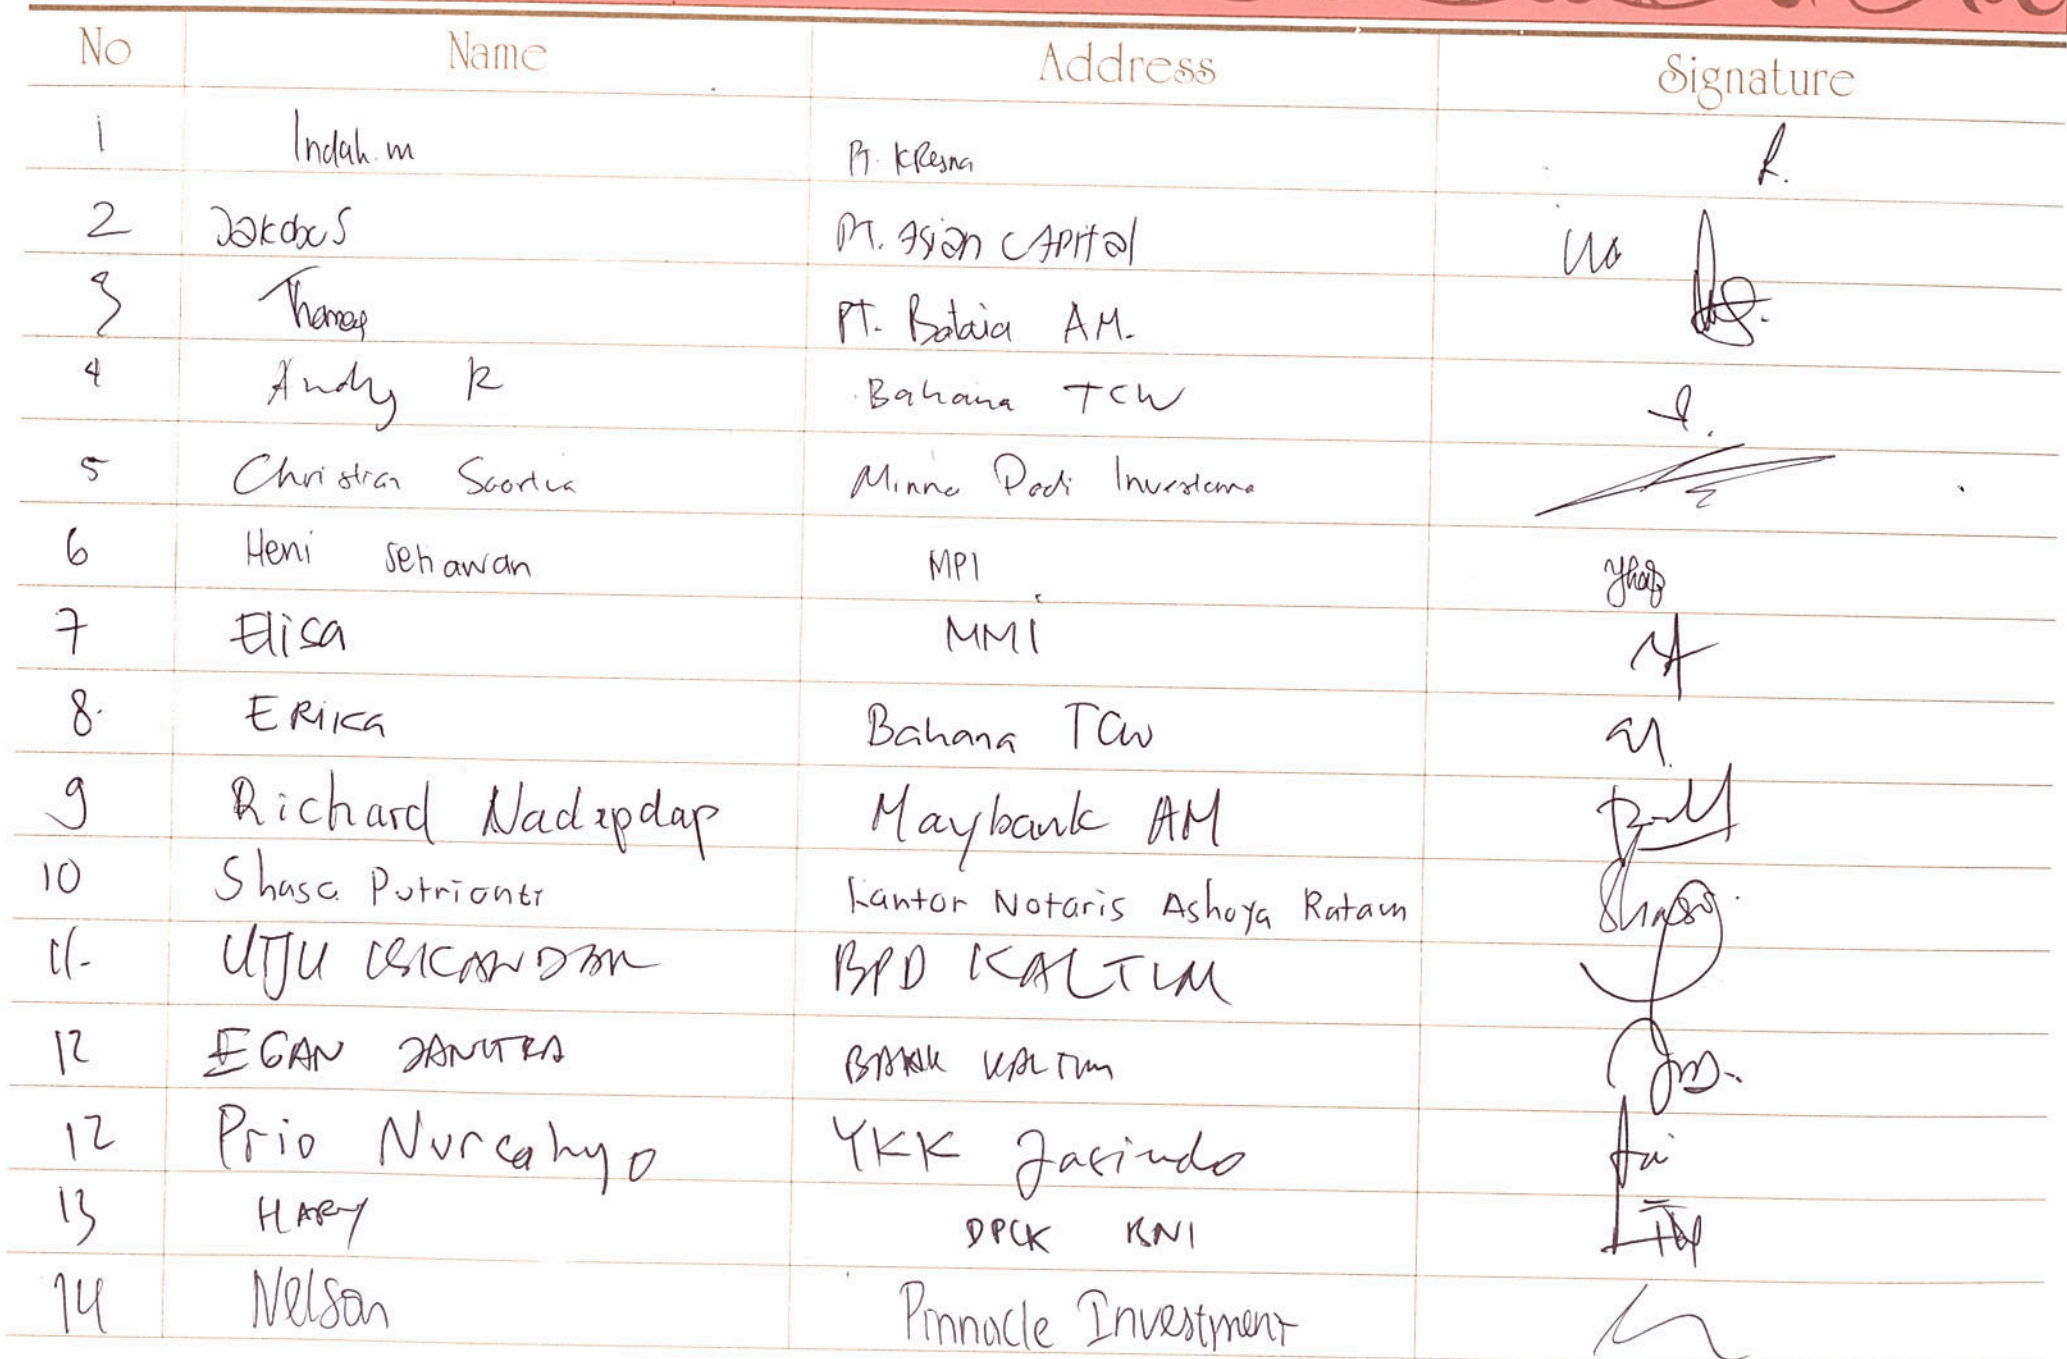 No Name Address Signature
1 Indah.m PT. KResna
2 Jakobus PT. Asian CApital
3 Thomas PT. Batavia AM.
4 Andy R Bahana TCW
5 Christian Minna Padi Investama
6 Heni Setiawan MPI
7 Elisa MMI
8. ERiKa Bahana TCW
9 Richard Nadapdap Maybank AM
10 Shasa Putrianti Kantor Notaris Ashoya Ratam
11. UJU ISKANDAR BPD KALTIM
12 EGAN BANK KALTIM
12 Prio Nurcahyo YKK Jasindo
13 HARY DPLK BNI
14 Nelson Pinnacle Investment